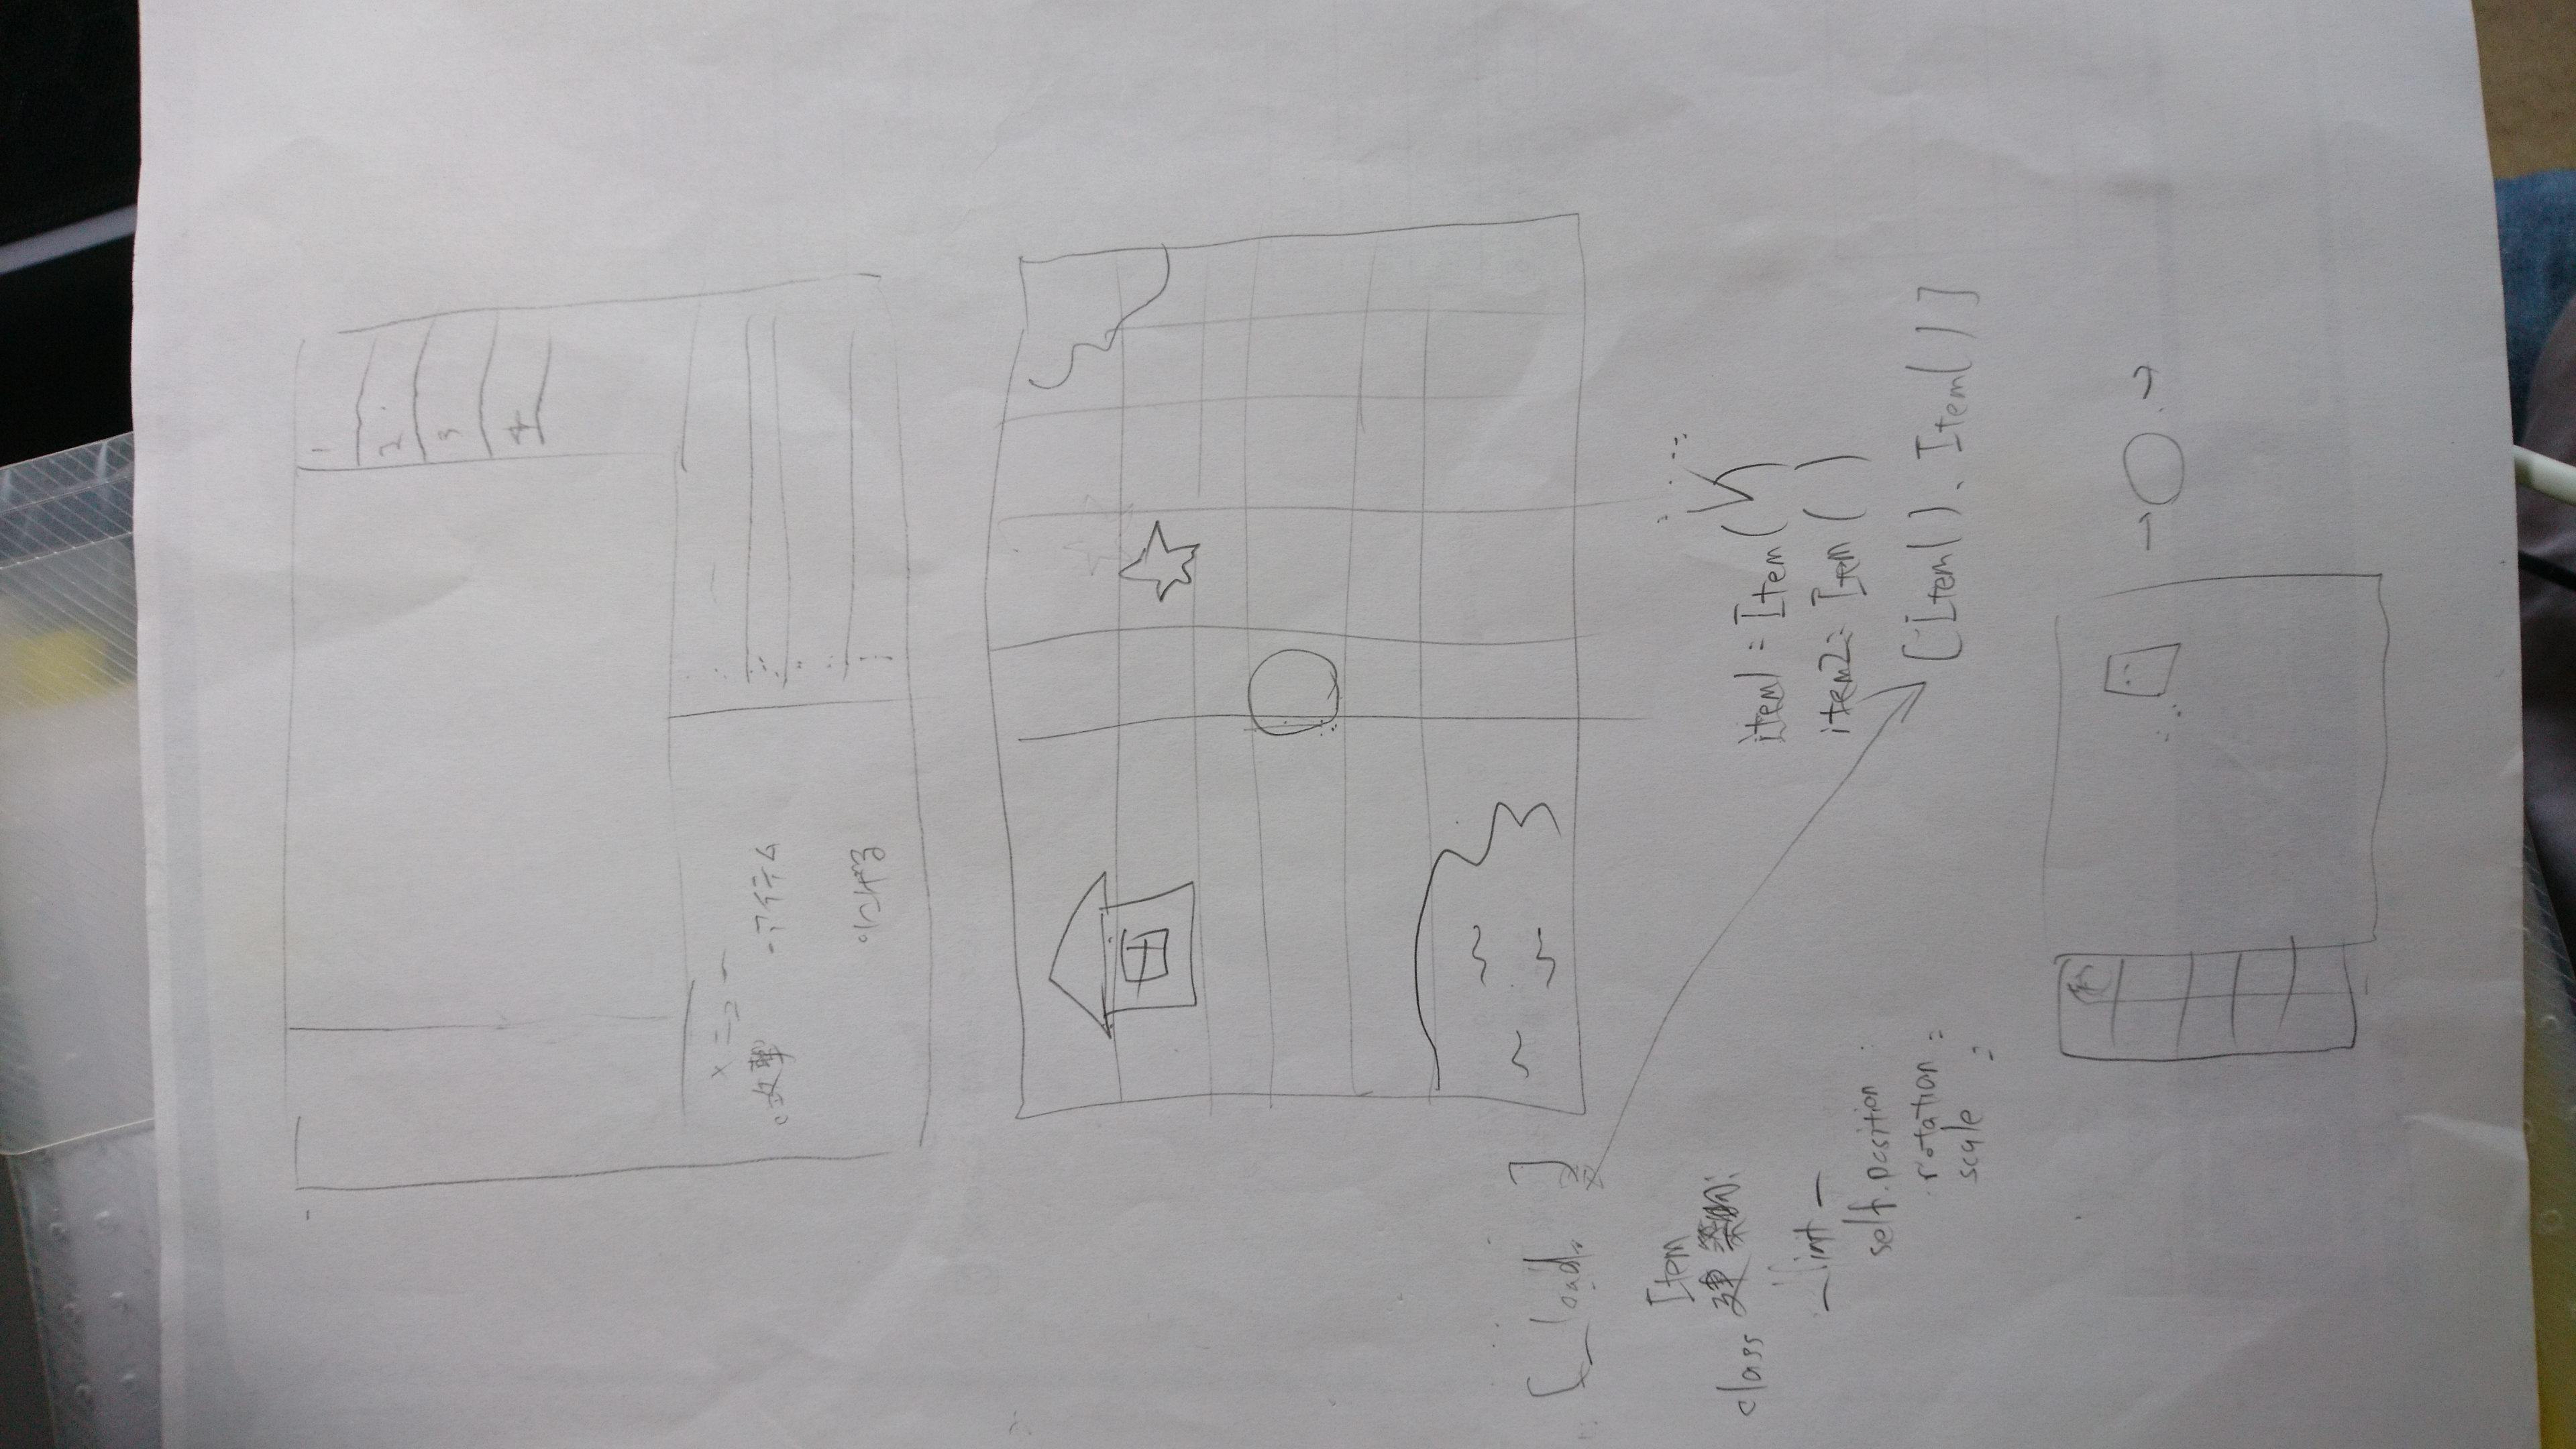 1
2
3
4
メニュー
攻撃 アイテム
にげる
[_load. ]
Item
class 建築物:
_init_
self.position :
rotation =
scale =
item1 = Item( )
item2 = Item( )
[Item( ), Item( )]